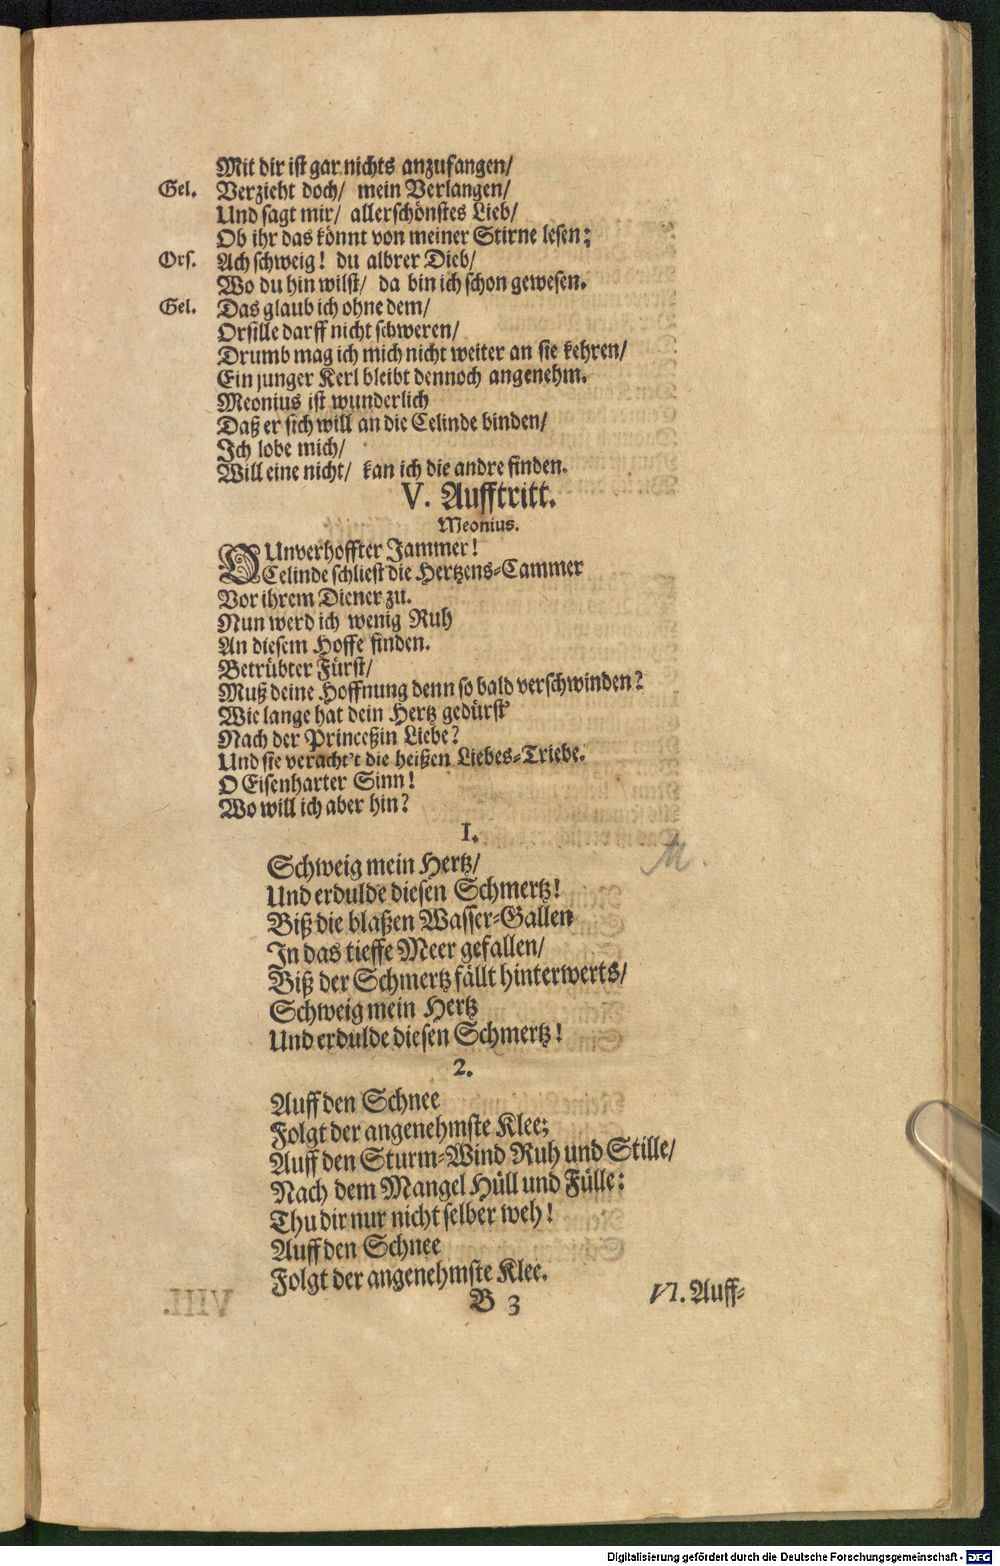 Mit dir ist gar nichts anzufangen/
Gel. Verzieht doch/ mein Verlangen/
Und sagt mir/ allerschönstes Lieb/
Ob ihr das könnt von meiner Stirne lesen;
Ors. Ach schweig! du albrer Dieb/
Wo du hin wilst/ da bin ich schon gewesen.
Gel. Das glaub ich ohne dem/
Orsille darff nicht schweren/
Drumb mag ich mich nicht weiter an sie kehren/
Ein junger Kerl bleibt dennoch angenehm.
Meonius ist wunderlich
Daß er sich will an die Celinde binden/
Ich lobe mich/
Will eine nicht/ kan ich die andre finden.
V. Aufftritt.
Meonius.
O Unverhoffter Jammer!
Celinde schliest die Hertzens-Cammer
Vor ihrem Diener zu.
Nun werd ich wenig Ruh
An diesem Hoffe finden.
Betrübter Fürst/
Muß deine Hoffnung denn so bald verschwinden?
Wie lange hat dein Hertz gedürst
Nach der Princeßin Liebe?
Und sie veracht't die heißen Liebes-Triebe.
O Eisenharter Sinn!
Wo will ich aber hin?
1.
Schweig mein Hertz/
Und erdulde diesen Schmertz!
Biß die blaßen Wasser-Gallen
In das tieffe Meer gefallen/
Biß der Schmertz fällt hinterwerts/
Schweig mein Hertz
Und erdulde diesen Schmertz!
2.
Auff den Schnee
Folgt der angenehmste Klee;
Auff den Sturm-Wind Ruh und Stille/
Nach dem Mangel Hüll und Fülle:
Thu dir nur nicht selber weh!
Auff den Schnee
Folgt der angenehmste Klee.
B 3 VI. Auff-
Digitalisierung gefördert durch die Deutsche Forschungsgemeinschaft - DFG